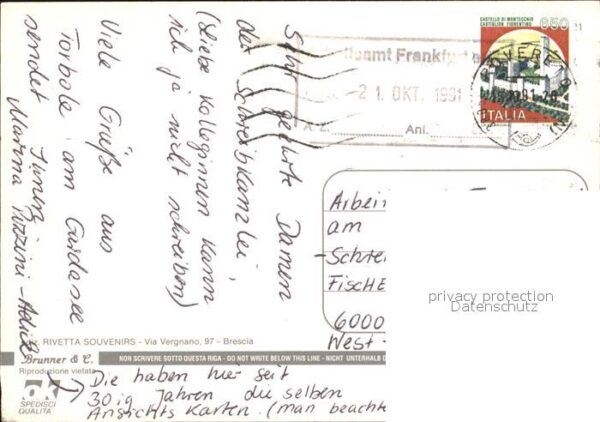 Sehr geehrte Damen
der Schreibkanzlei,
(Liebe Kolleginnen kann
ich ja nicht schreiben)
Viele Grüße aus
Torbole am Gardasee
sendet Ihnen
Marina
CASTELLO DI MONTECCHIO
CASTIGLION FIORENTINO
650
ITALIA
amt Frankfurt
21. OKT. 1991
A. Z. Anl.
Arbei
am
-Schre
Fische
6000
West-
privacy protection
Datenschutz
RIVETTA SOUVENIRS - Via Vergnano, 97 - Brescia
Brunner & C.
Riproduzione vietata
NON SCRIVERE SOTTO QUESTA RIGA - DO NOT WRITE BELOW THIS LINE - NICHT UNTERHALB D
ok
SPEDISCI
QUALITÀ
Die haben hier seit
30ig Jahren die selben
Ansichts Karten. (man beachte